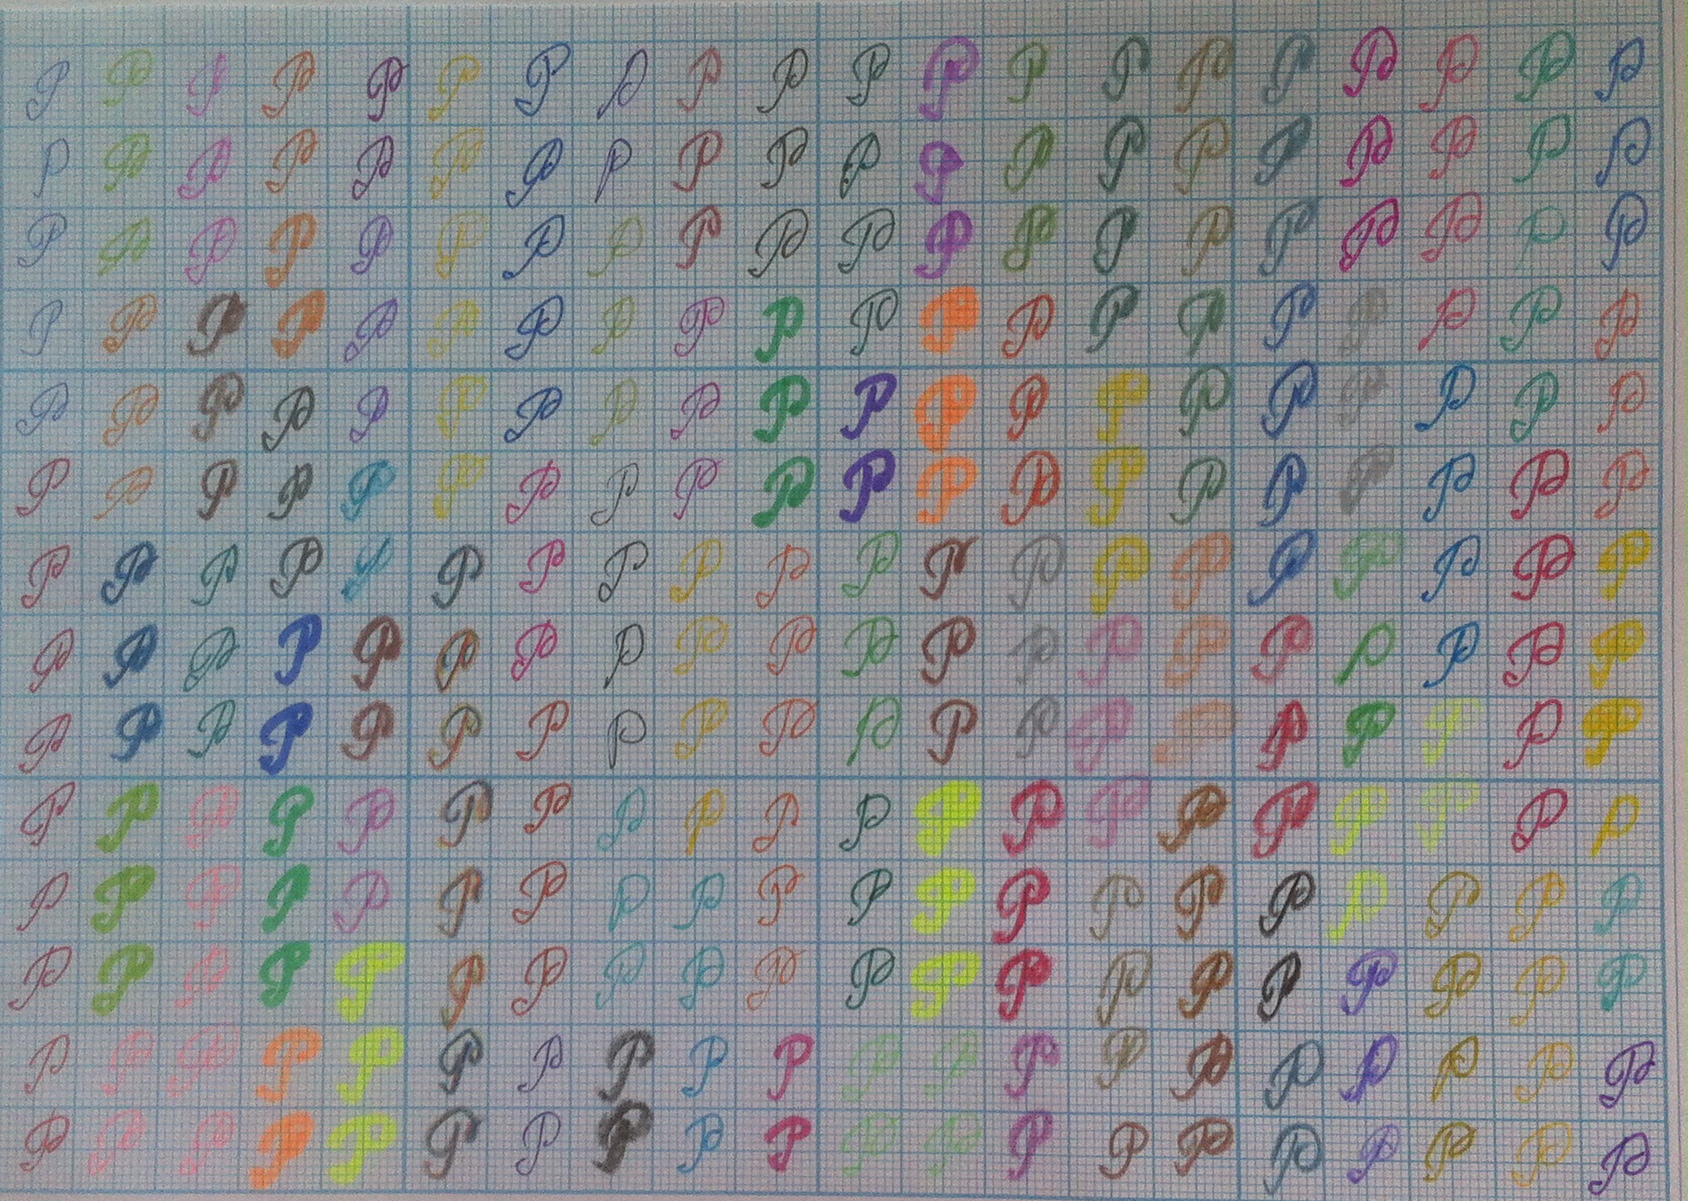 P P P P P P P P P P P P P P P P P P P P
P P P P P P P P P P P P P P P P P P P P
P P P P P P P P P P P P P P P P P P P P
P P P P P P P P P P P P P P P P P P P P
P P P P P P P P P P P P P P P P P P P P
P P P P P P P P P P P P P P P P P P P P
P P P P P P P P P P P P P P P P P P P P
P P P P P P P P P P P P P P P P P P P P
P P P P P P P P P P P P P P P P P P P P
P P P P P P P P P P P P P P P P P P P P
P P P P P P P P P P P P P P P P P P P P
P P P P P P P P P P P P P P P P P P P P
P P P P P P P P P P P P P P P P P P P P
P P P P P P P P P P P P P P P P P P P P